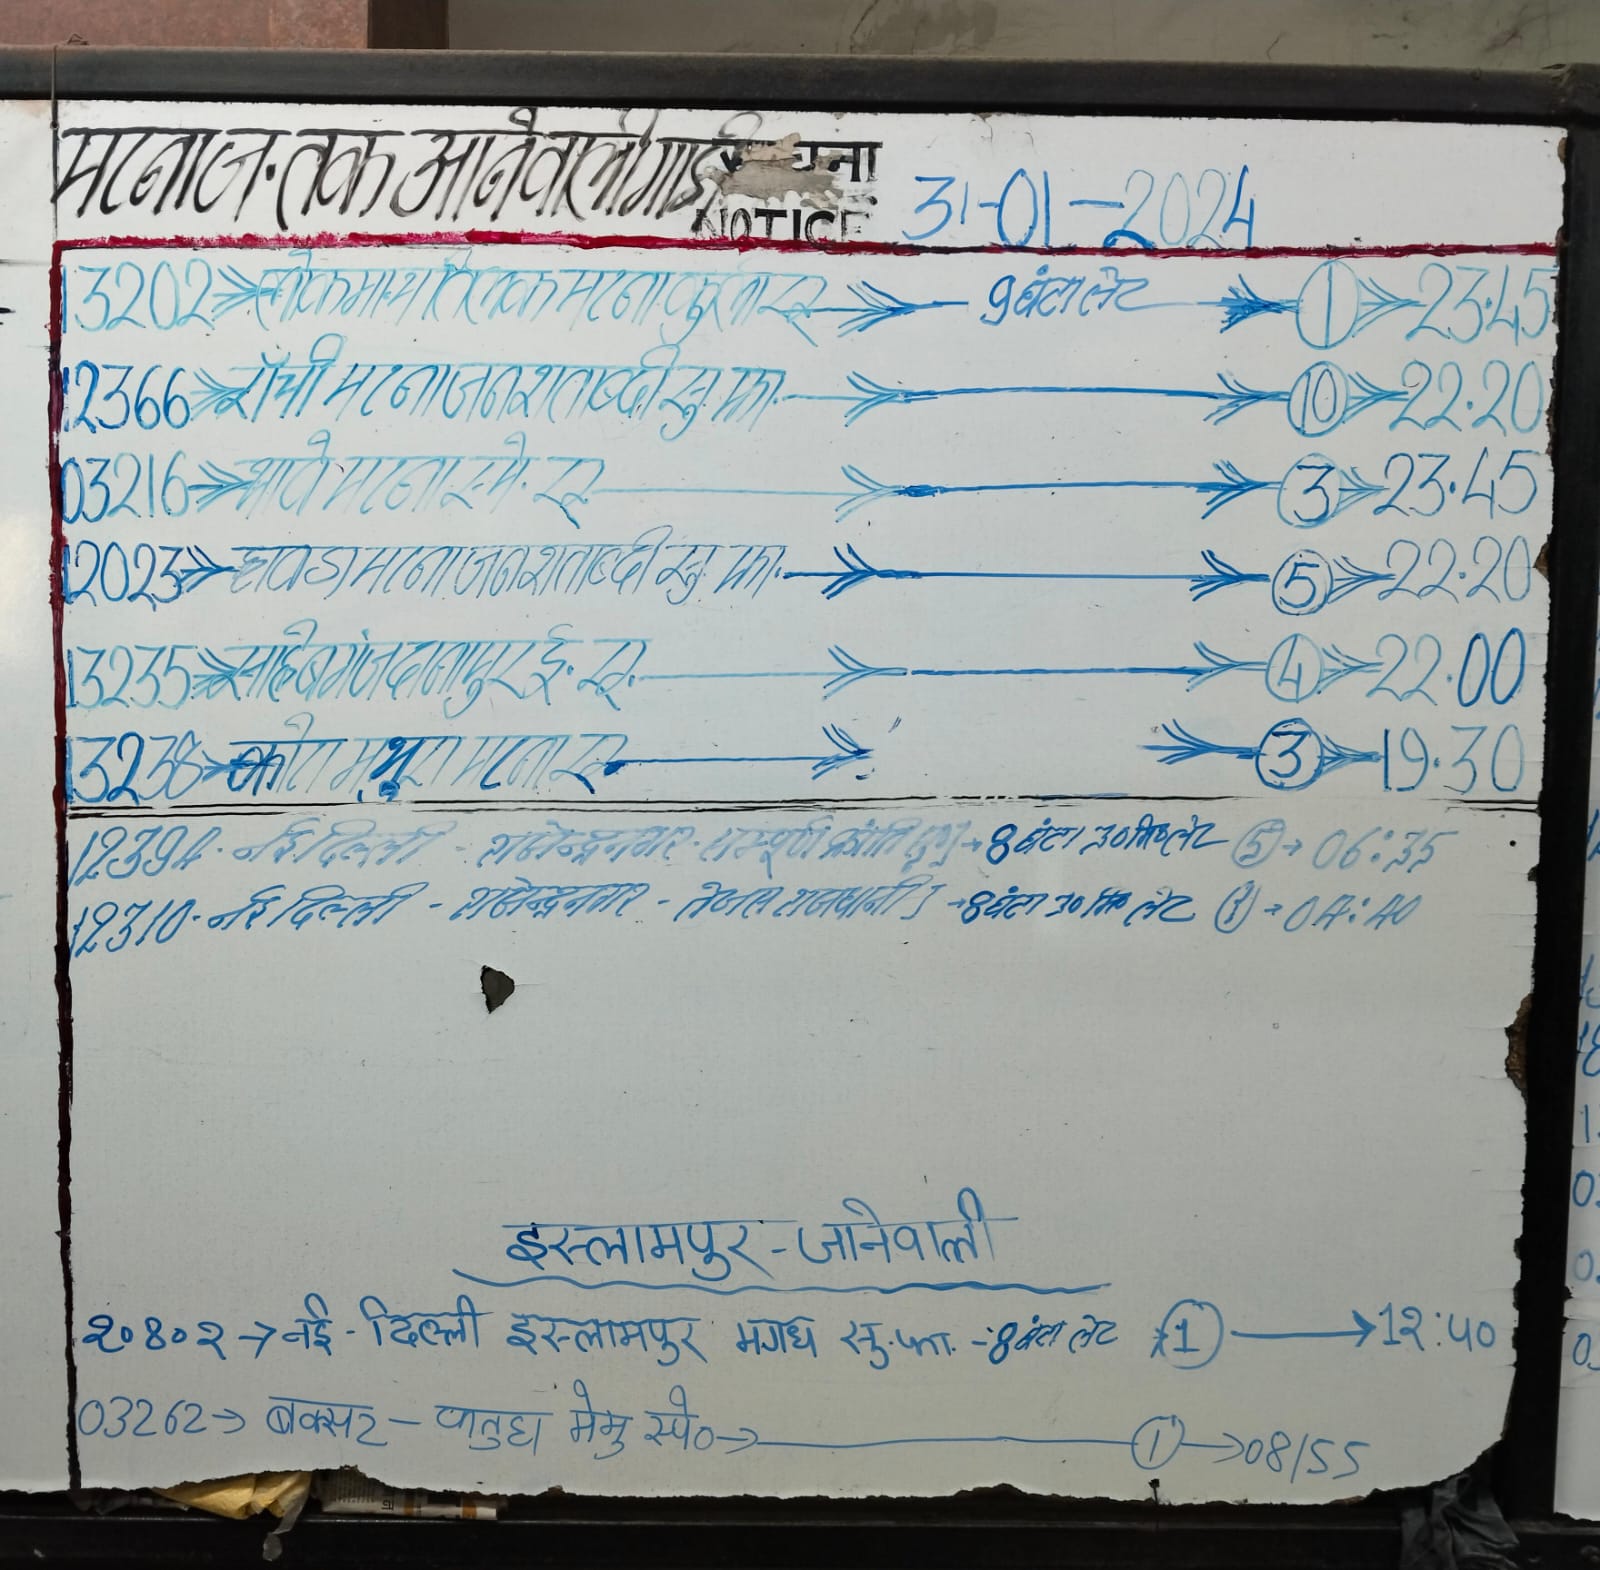 पटना ज. तक आनेवाली गाड़ी सूचना
NOTICE 31-01-2024
13202 लोकमान्य तिलक पटना कुर्ला एक्स 9 घंटा लेट 1 23.45
12366 राँची पटना जनशताब्दी सु. फा. 10 22.20
03216 पटना स्पे. एक्स. 3 23.45
12023 हावड़ा पटना जनशताब्दी सु. फा. 5 22.20
13235 साहेबगंज दानापुर ई. एक्स. 4 22.00
13238 कोटा मथुरा पटना एक्स. 3 19.30
12394. नई दिल्ली - राजेन्द्रनगर. सम्पूर्ण क्रांति → 8 घंटा 30 मि० लेट 5 → 06:35
12310. नई दिल्ली - राजेन्द्रनगर - तेजस राजधानी → 8 घंटा 30 मि० लेट 1 → 04:40
इस्लामपुर - जानेवाली
२०८०२ → नई - दिल्ली इस्लामपुर मगध सु. फा. -: 8 घंटा लेट 1 → 12:40
03262 → बक्सर - फतुहा मेमु स्पे० → 1 → 08/55